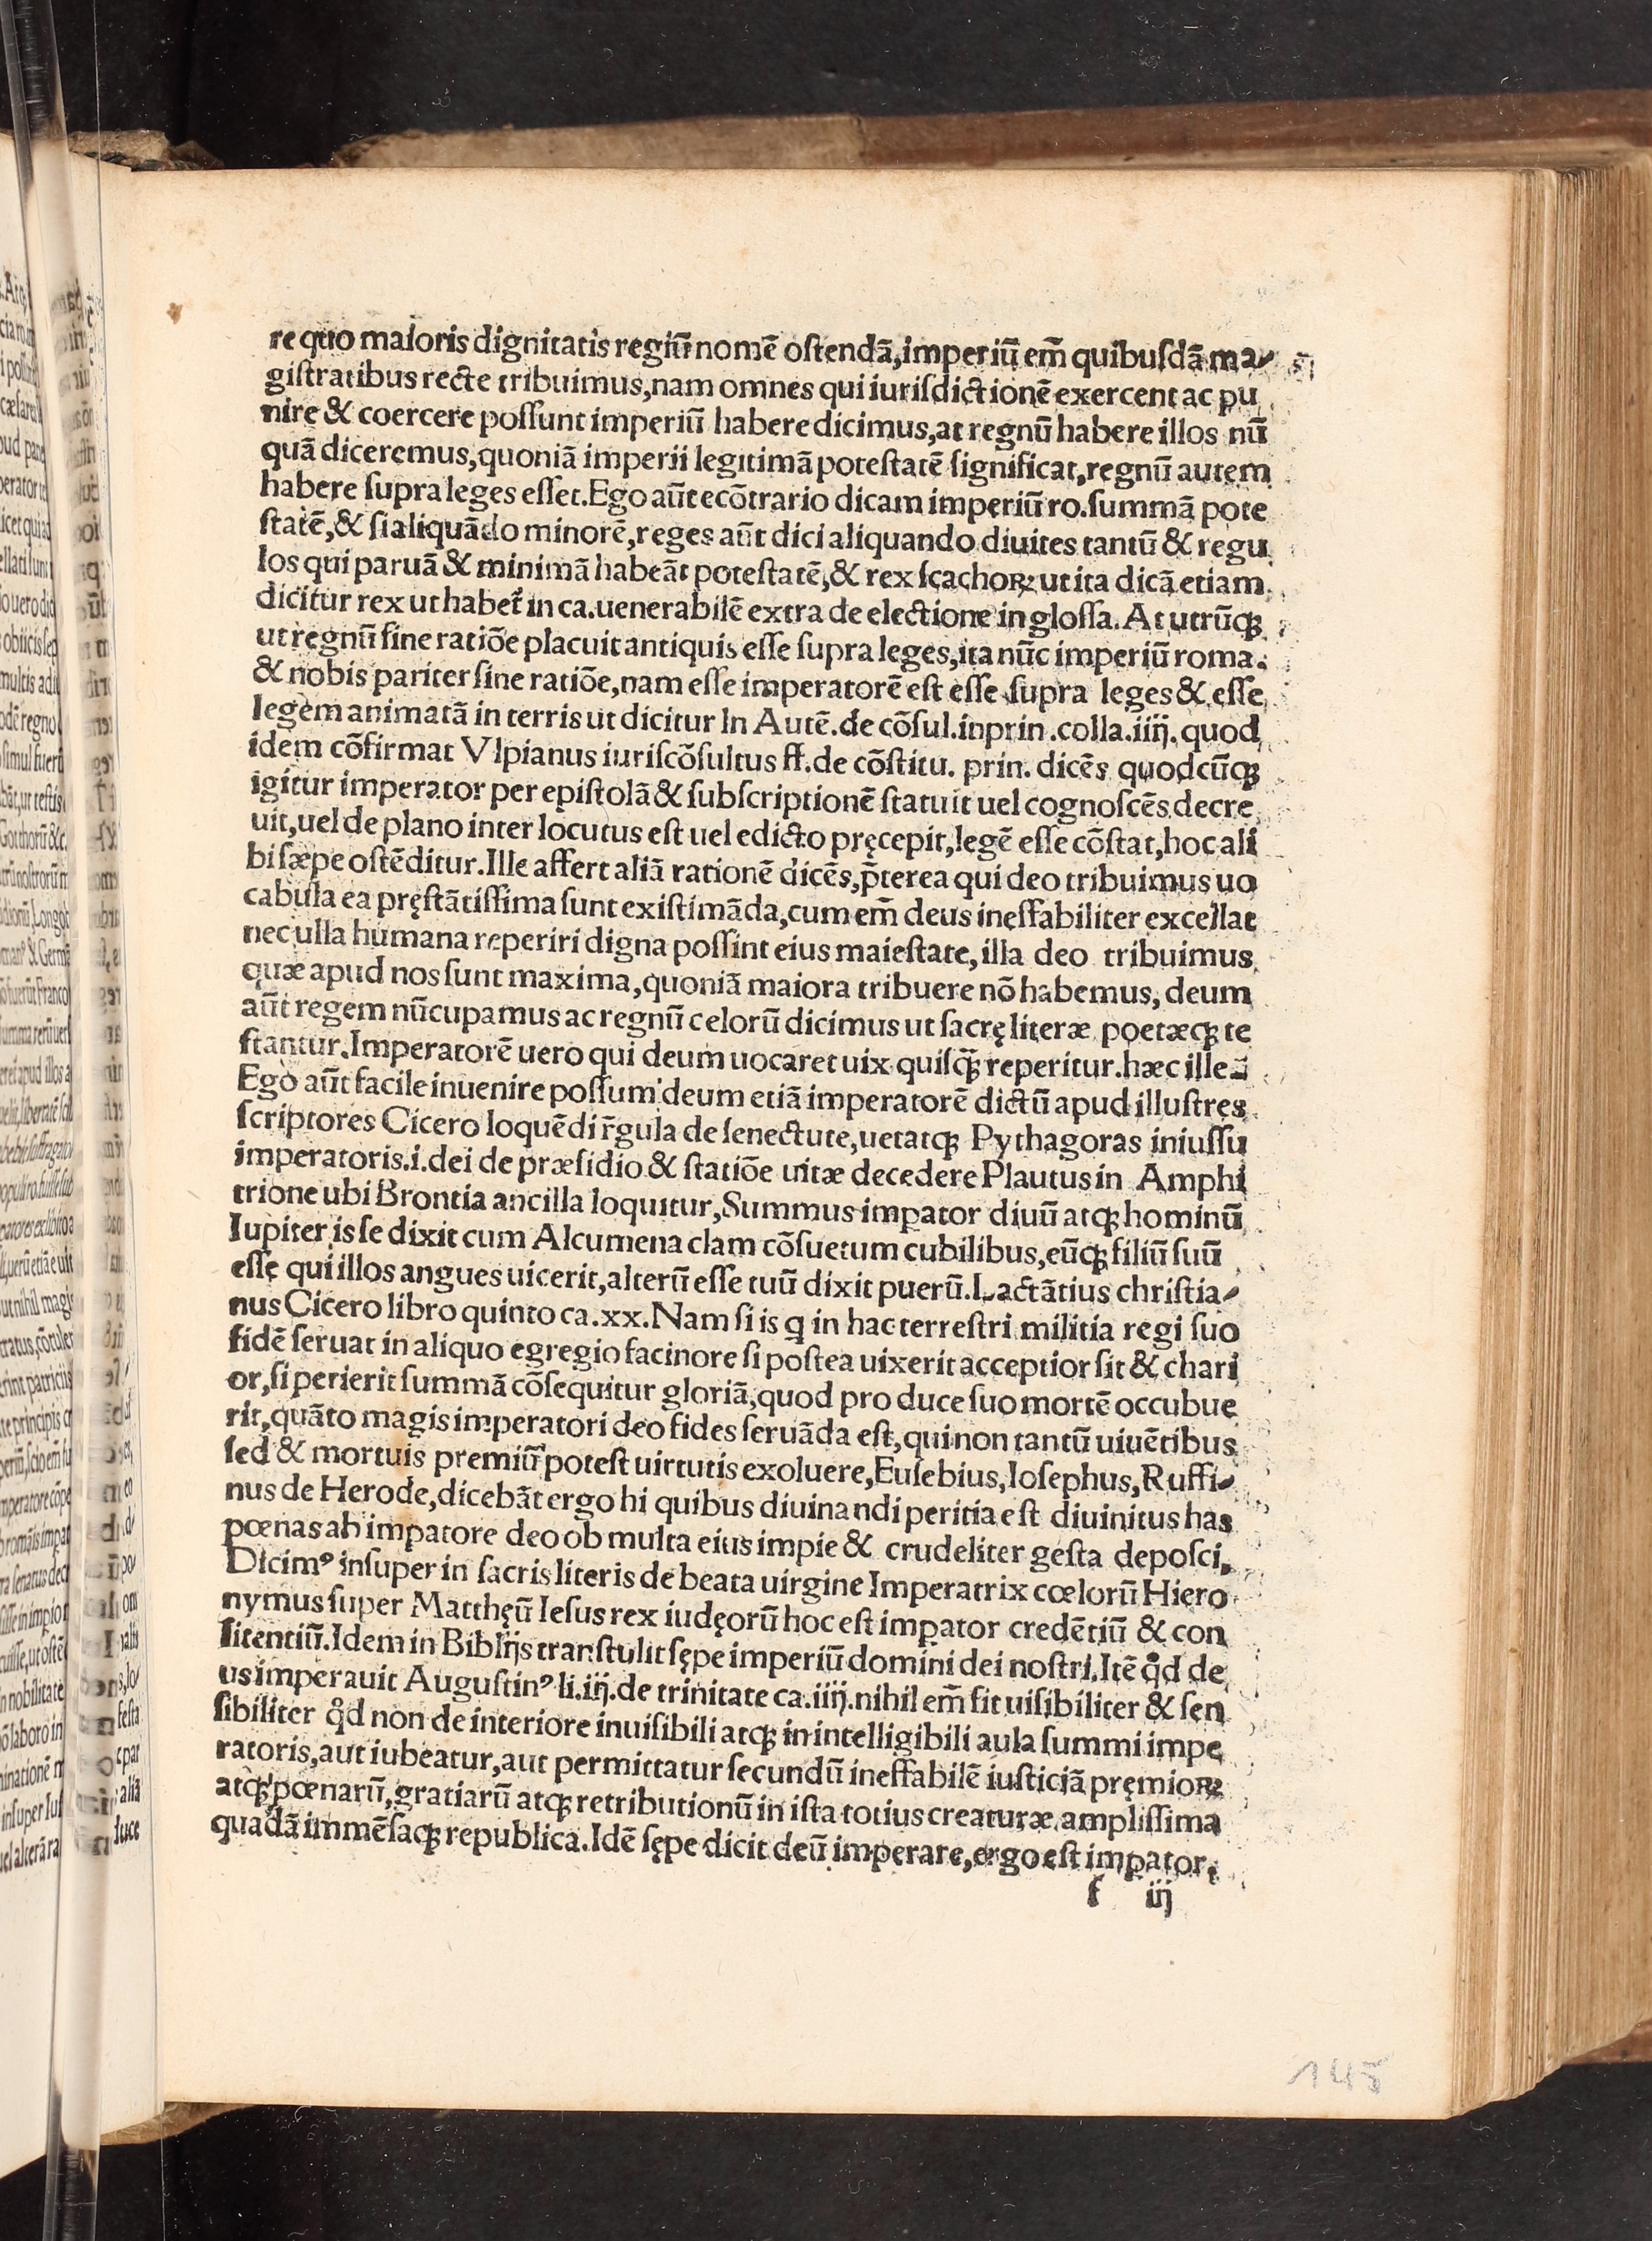 re quo maioris dignitatis regiū nomē ostendā, imperiū em̄ quibusdā ma⸗
gistratibus recte tribuimus, nam omnes qui iurisdictionē exercent ac pu
nire & coercere possunt imperiū habere dicimus, at regnū habere illos nū
quā diceremus, quoniā imperii legitimā potestatē significat, regnū autem
habere supra leges esset. Ego aūt ecōtrario dicam imperiū ro. summā pote
statē, & si aliquādo minorē, reges aūt dici aliquando diuites tantū & regu
los qui paruā & minimā habeāt potestatē, & rex scachoꝝ ut ita dicā etiam
dicitur rex ut habet̄ in ca. uenerabilē extra de electione in glossa. At utrūqꝫ
ut regnū sine ratiōe placuit antiquis esse supra leges, ita nūc imperiū roma.
& nobis pariter sine ratiōe, nam esse imperatorē est esse supra leges & esse
legem animatā in terris ut dicitur In Autē. de cōsul. in prin. colla. iiij. quod
idem cōfirmat Vlpianus iuriscōsultus ff. de cōstitu. prin. dicēs quodcūqꝫ
igitur imperator per epistolā & subscriptionē statuit uel cognoscēs decre
uit, uel de plano inter locutus est uel edicto pręcepit, legē esse cōstat, hoc ali
bi sæpe ostēditur. Ille affert aliā rationē dicēs, p̄terea qui deo tribuimus uo
cabula ea pręstātissima sunt existimāda, cum em̄ deus ineffabiliter excellat
nec ulla humana reperiri digna possint eius maiestate, illa deo tribuimus
quæ apud nos sunt maxima, quoniā maiora tribuere nō habemus, deum
aūt regem nūcupamus ac regnū celorū dicimus ut sacrę literæ poetæqꝫ te
stantur. Imperatorē uero qui deum uocaret uix quisq̄ꝫ reperitur. hæc ille
Ego aūt facile inuenire possum deum etiā imperatorē dictū apud illustres
scriptores Cicero loquēdi r̄gula de senectute, uetatqꝫ Pythagoras iniussu
imperatoris .i. dei de præsidio & statiōe uitæ decedere Plautus in Amphi
trione ubi Brontia ancilla loquitur, Summus impator diuū atqꝫ hominū
Iupiter is se dixit cum Alcumena clam cōsuetum cubilibus, eūqꝫ filiū suū
esse qui illos angues uicerit, alterū esse tuū dixit puerū. Lactātius christia⸗
nus Cicero libro quinto ca. xx. Nam si is q in hac terrestri militia regi suo
fidē seruat in aliquo egregio facinore si postea uixerit acceptior sit & chari
or, si perierit summā cōsequitur gloriā, quod pro duce suo mortē occubue
rit, quāto magis imperatori deo fides seruāda est, qui non tantū uiuētibus
sed & mortuis premiū potest uirtutis exoluere, Eusebius, Iosephus, Ruffi⸗
nus de Herode, dicebāt ergo hi quibus diuinandi peritia est diuinitus has
pœnas ab impatore deo ob multa eius impie & crudeliter gesta deposci,
Dicimꝰ insuper in sacris literis de beata uirgine Imperatrix cœlorū Hiero
nymus super Matthęū Iesus rex iudęorū hoc est impator credētiū & con
fitentiū. Idem in Biblijs transtulit sępe imperiū domini dei nostri. Itē qd́ de
us imperauit Augustinꝰ li. iij. de trinitate ca. iiij. nihil em̄ fit uisibiliter & sen
sibiliter qd́ non de interiore inuisibili atqꝫ in intelligibili aula summi impe
ratoris, aut iubeatur, aut permittatur secundū ineffabilē iusticiā pręmioꝝ
atqꝫ pœnarū, gratiarū atqꝫ retributionū in ista totius creaturæ amplissima
quadā immēsaqꝫ republica. Idē sępe dicit deū imperare, ergo est impator,
f iij
145